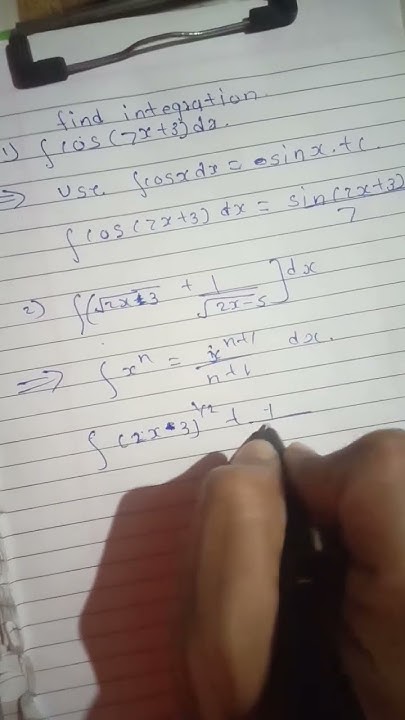 find integration.
1) ∫cos(7x+3)dx.
⇒ use ∫cosxdx = sinx.+c.
∫cos(7x+3) dx = sin(7x+3)/7
2) ∫(√2x-3 + 1/√2x-5]dx
⇒ ∫x^n = x^n+1/n+1 dx.
∫(2x-3)^1/2 + 1